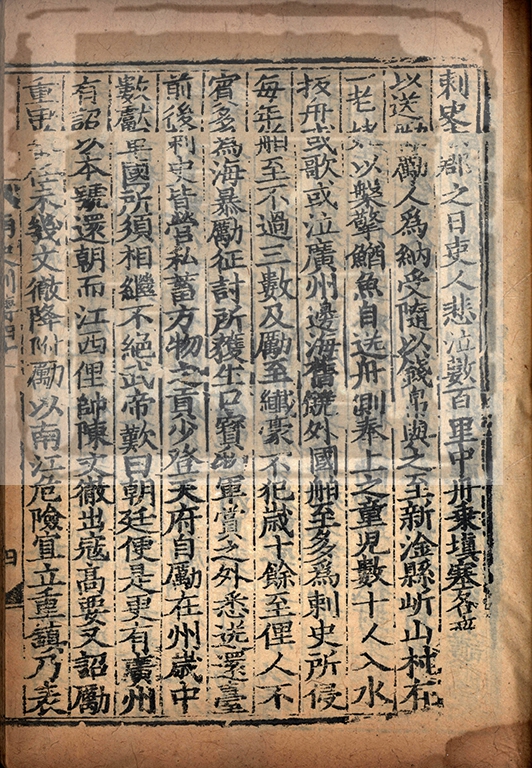 刺史郡之日吏人悲泣數百里中舟乗塡塞各
以送勱人爲納受隨以錢帛與之至新淦縣岓山村有
一老姥以槃擎鰌魚自送舟側奉上之童兒數十人入水
扳舟或歌或泣廣州邊海舊饒外國舶至多爲刺史所侵
每年舶至不過三數及勱至纎豪不犯歲十餘至俚人不
賔多爲海暴勱征討所獲生口寳物軍賞之外悉送還臺
前後刺史皆營私蓄方物之貢少登天府自勱在州歲中
數獻軍國所須相繼不絶武帝歎曰朝廷便是更有廣州
有詔以本號還朝而江西俚帥陳文徹出寇髙要又詔勱
重申任未幾文徹降附勱以南江危險宜立重鎮乃表
南史列傳四十一
四